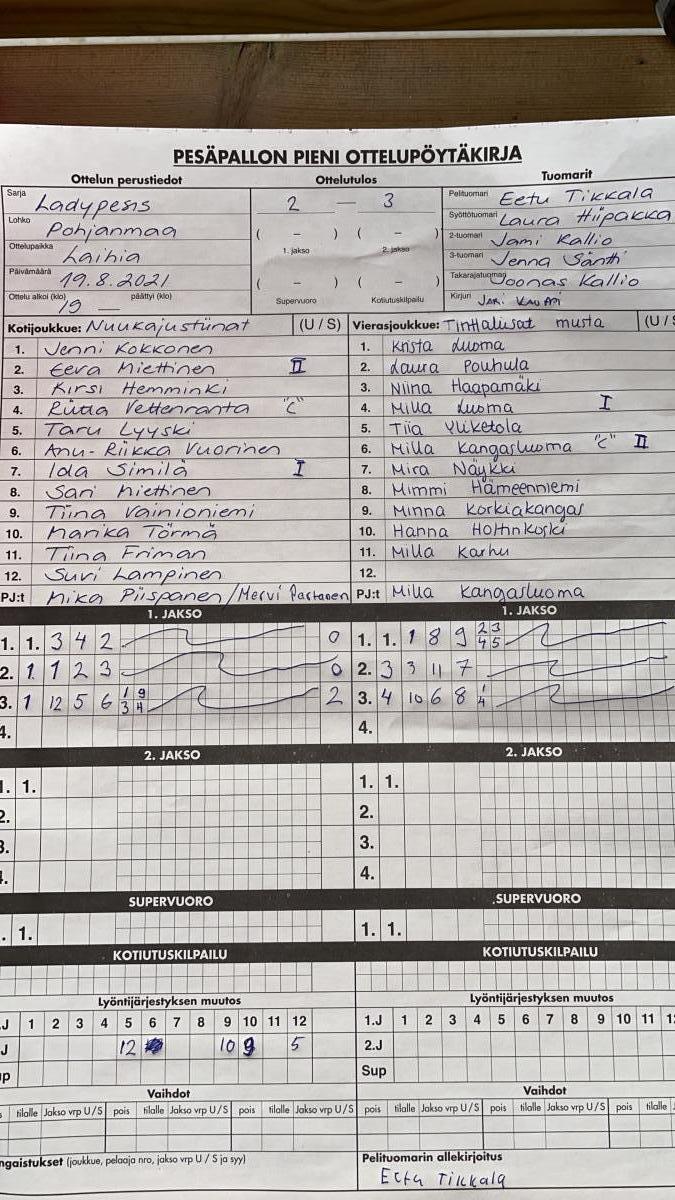 PESÄPALLON PIENI OTTELUPÖYTÄKIRJA
Ottelun perustiedot Ottelutulos Tuomarit
Sarja Ladypesis 2 — 3 Pelituomari Eetu Tikkala
Lohko Pohjanmaa ( – ) ( – ) Syöttötuomari Laura Hiipakka
Ottelupaikka Laihia 1. jakso 2. jakso 2-tuomari Jami Kallio
Päivämäärä 19.8.2021 ( – ) ( – ) 3-tuomari Jenna Säntti
Takarajatuomari Joonas Kallio
Ottelu alkoi (klo) 19 — päättyi (klo) Supervuoro Kotiutuskilpailu Kirjuri Jari Kauppi
Kotijoukkue: Nuukajustiinat (U / S) Vierasjoukkue: TinttaLiisat musta (U / S
1. Jenni Kokkonen 1. Krista Luoma
2. Eeva Miettinen II 2. Laura Pouhula
3. Kirsi Hemminki 3. Niina Haapamäki
4. Riitta Vettenranta "C" 4. Milla Luoma I
5. Taru Lyyski 5. Tiia Yliketola
6. Anu-Riikka Vuorinen 6. Milla Kangasluoma "C" II
7. Iida Similä I 7. Mira Näykki
8. Sari Miettinen 8. Mimmi Hämeenniemi
9. Tiina Vainioniemi 9. Minna Korkiakangas
10. Marika Törmä 10. Hanna Holtinkoski
11. Tiina Friman 11. Milla Karhu
12. Suvi Lampinen 12.
PJ:t Mika Piispanen/Mervi Partanen PJ:t Milla Kangasluoma
1. JAKSO 1. JAKSO
1. 1. 3 4 2 0 1. 1. 1 8 9 2 3 4 5
2. 1 1 2 3 0 2. 3 3 11 7
3. 1 12 5 6 1 9 3 4 2 3. 4 10 6 8 1 4
4. 4.
2. JAKSO 2. JAKSO
1. 1. 1. 1.
2. 2.
3. 3.
4. 4.
SUPERVUORO SUPERVUORO
1. 1. 1.
KOTIUTUSKILPAILU KOTIUTUSKILPAILU
Lyöntijärjestyksen muutos Lyöntijärjestyksen muutos
.J 1 2 3 4 5 6 7 8 9 10 11 12 1.J 1 2 3 4 5 6 7 8 9 10 11
J 12 10 9 5 2.J
up Sup
Vaihdot Vaihdot
tilalle Jakso vrp U / S pois tilalle Jakso vrp U / S pois tilalle Jakso vrp U / S pois tilalle Jakso vrp U / S pois tilalle Jakso vrp U / S pois tilalle
ngaistukset (joukkue, pelaaja nro, jakso vrp U / S ja syy) Pelituomarin allekirjoitus
Eetu Tikkala